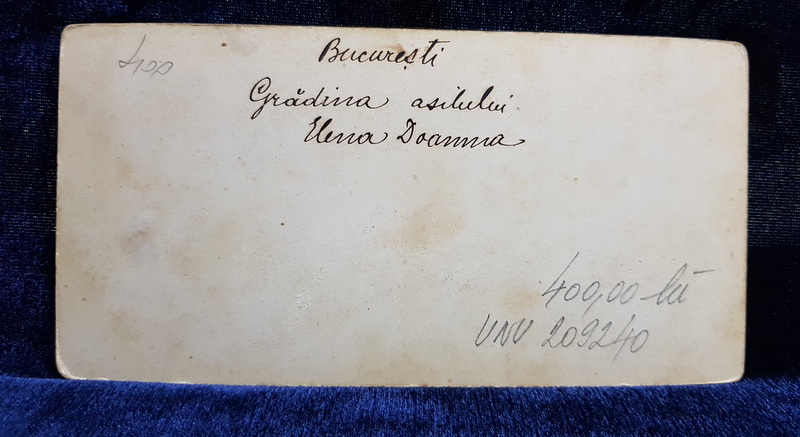 400
București
Grădina asilului
Elena Doamna
400,00 lei
VNV 209240